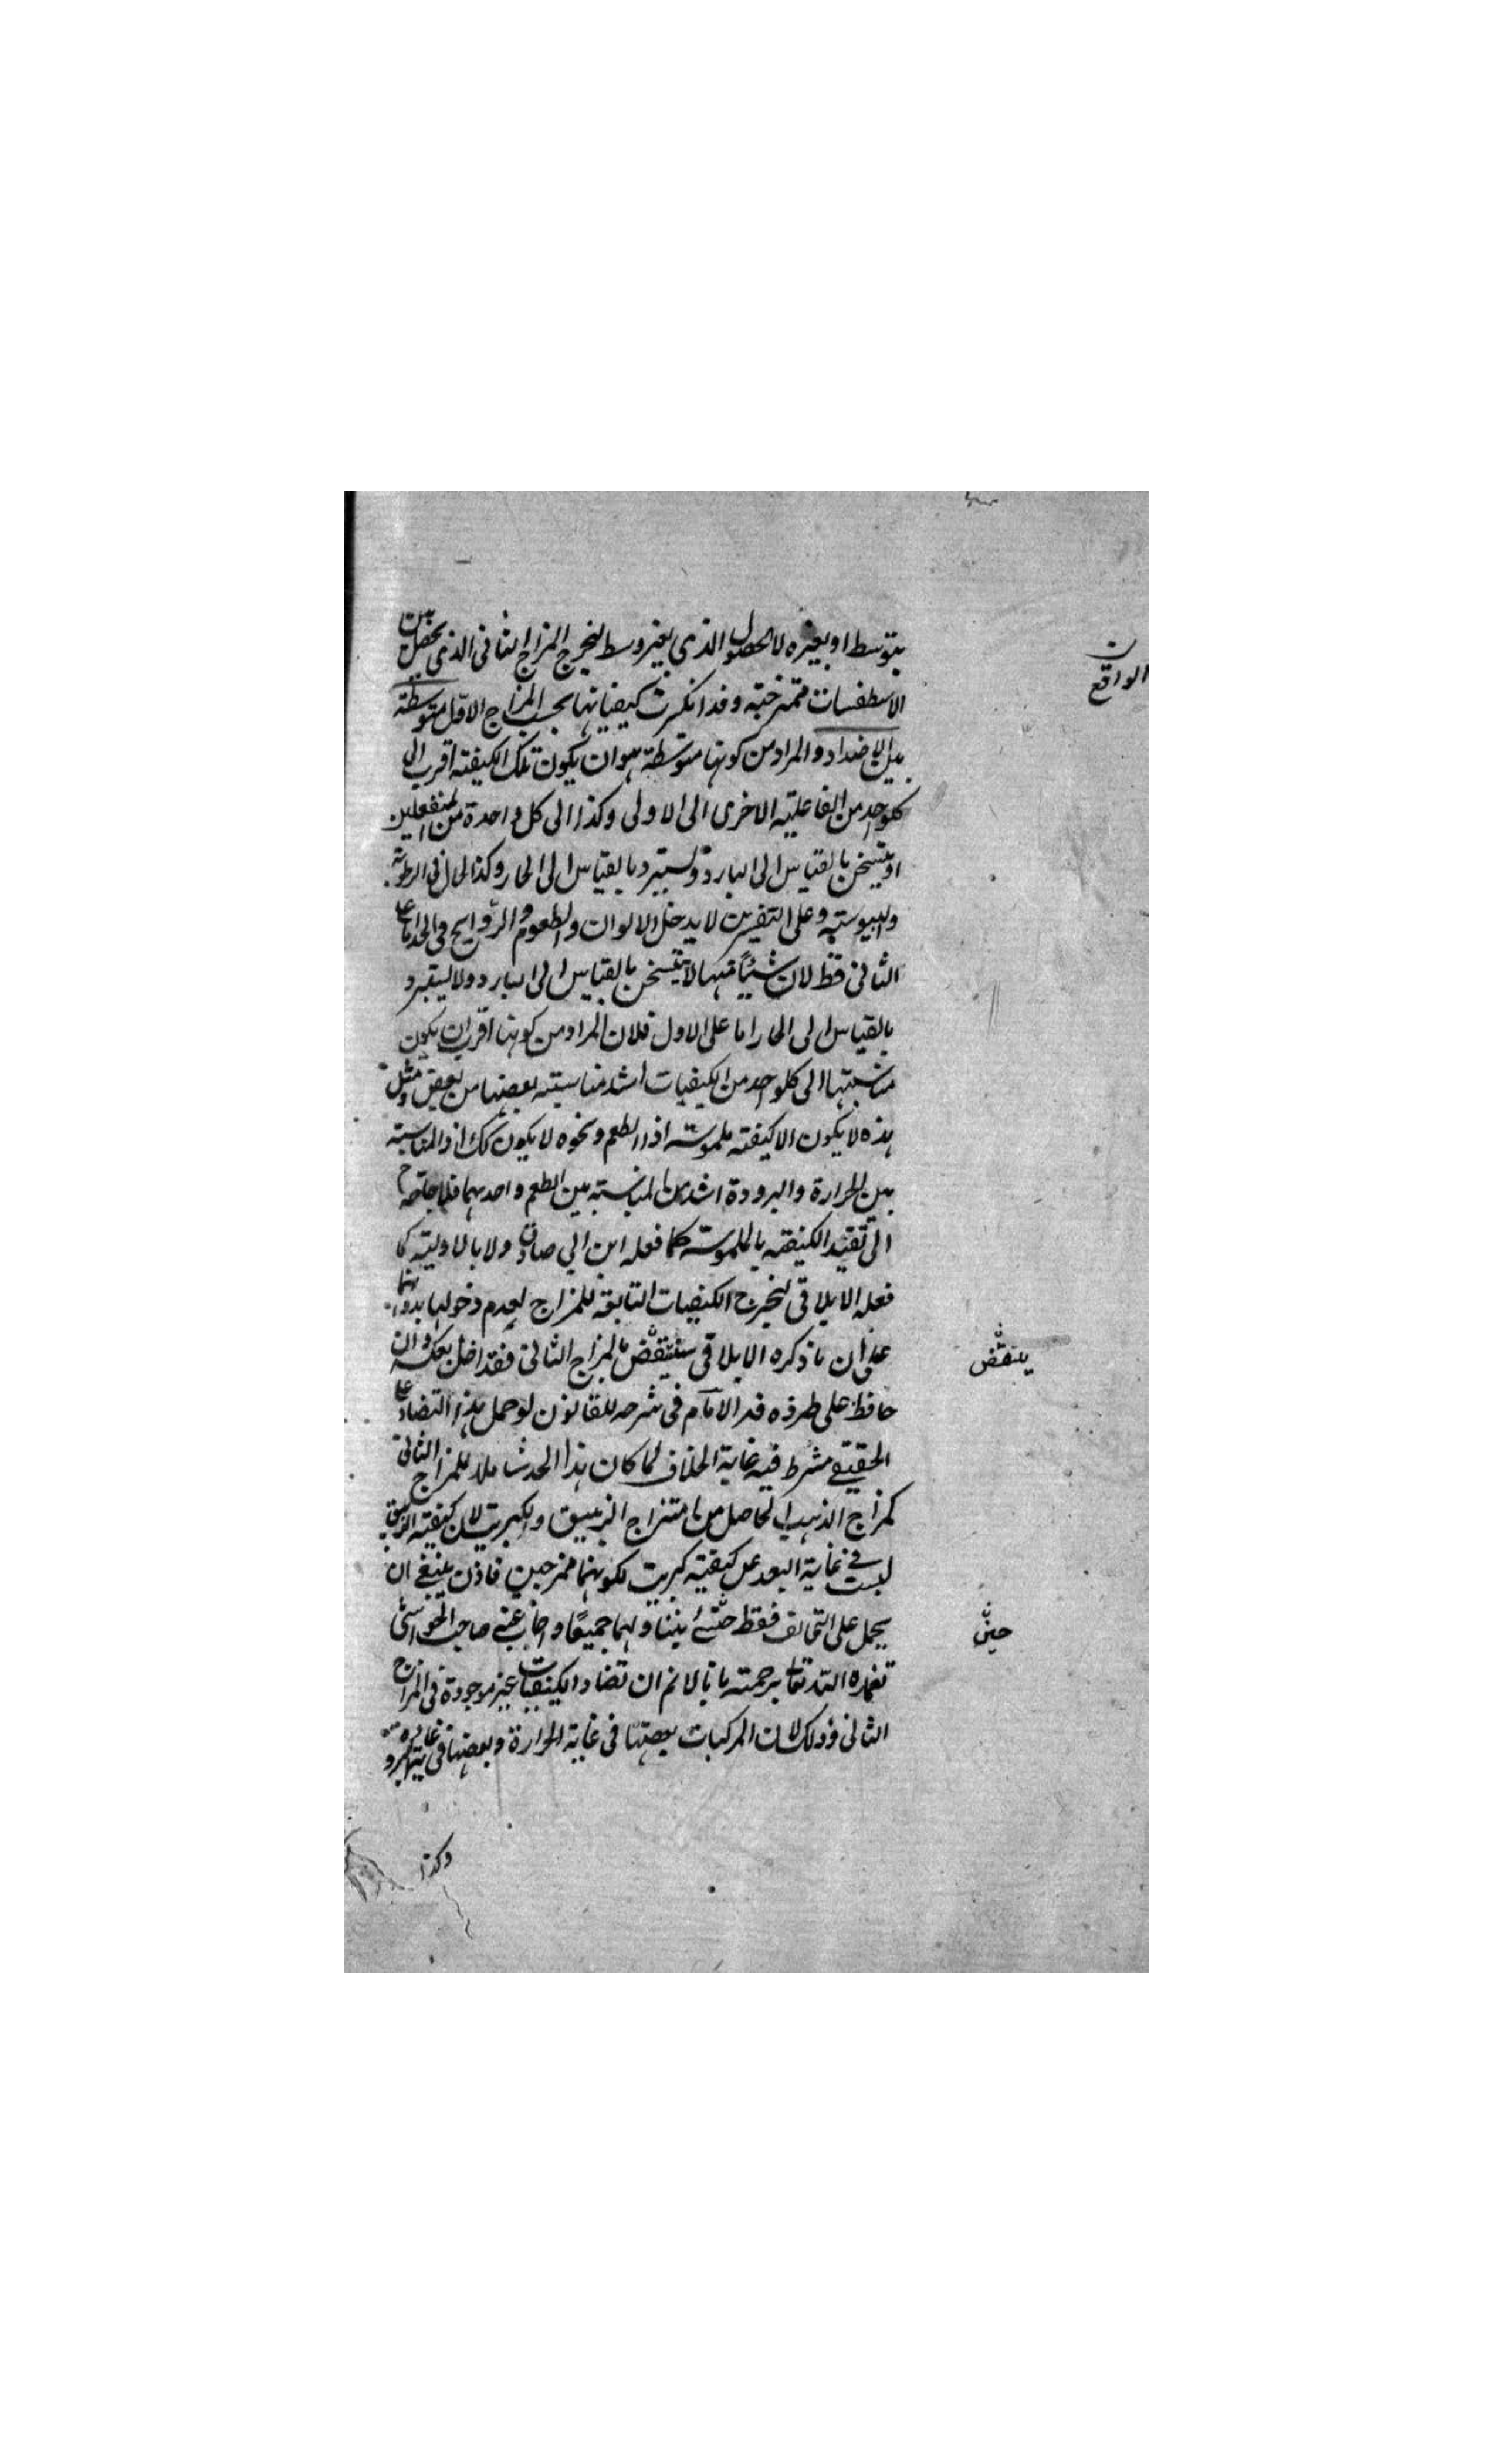 بتوسط او بغيره لا الحصول الذي بغير وسط ليخرج المزاج الثاني الذي يحصل بين
الاسطقسات ممتزجة وقد انكسرت كيفياتها بحسب المزاج الاول متوسطة
بين الاضداد والمراد من كونها متوسطة هو ان يكون تلك الكيفية اقرب الى
كلواحد من الفاعلية الاخرى الى الاولى وكذا الى كل واحدة من المنفعلين
او يتسخن بالقياس الى البارد ويستبرد بالقياس الى الحار وكذا الحال في الرطوبة
واليبوسة وعلى التفسيرين لا يدخل الالوان والطعوم والروايح في الحد اما على
الثاني فقط لان شيئا منها لا يتسخن بالقياس الى البارد ولا يستبرد
بالقياس الى الحار اما على الاول فلان المراد من كونها اقرب ان يكون
مناسبتها الى كلواحد من الكيفيات اشد مناسبة بعضها من بعض ومثل
هذه لا يكون الا كيفية ملموسة اذ الطعم ونحوه لا يكون كك اذ المناسبة
بين الحرارة والبرودة اشد من المناسبة بين الطعم واحديهما فلا حاجة ح
الى تقييد الكيفية بالملموسة كما فعله ابن ابي صادق ولا بالاولية كما
فعله الايلاقي ليخرج الكيفيات التابعة للمزاج لعدم دخولها بدونهما
على ان ما ذكره الايلاقي ينتقض بالمزاج الثاني فقد اخل بعكسه وان
حافظ على طرده قد الامام في شرحه للقانون لو حمل هذا التضاد على
الحقيقي مشرط فيه غاية الخلاف لما كان هذا الحد شاملا للمزاج الثاني
كمزاج الذهب الحاصل من امتزاج الزيبق والكبريت لان كيفية الزيبق
ليست في غاية البعد عن كيفية كبريت لكونهما ممزجين فاذن ينبغي ان
يحمل على التخالف فقط حتى يتناولهما جميعا واجاب عنه صاحب الحواشي
تغمده الله تعالى برحمته بانا لا نم ان تضاد الكيفيات غير موجودة في المزاج
الثاني وذلك لان المركبات بعضها في غاية الحرارة وبعضها في غاية البرودة
وكذا
الواقع
ينتقض